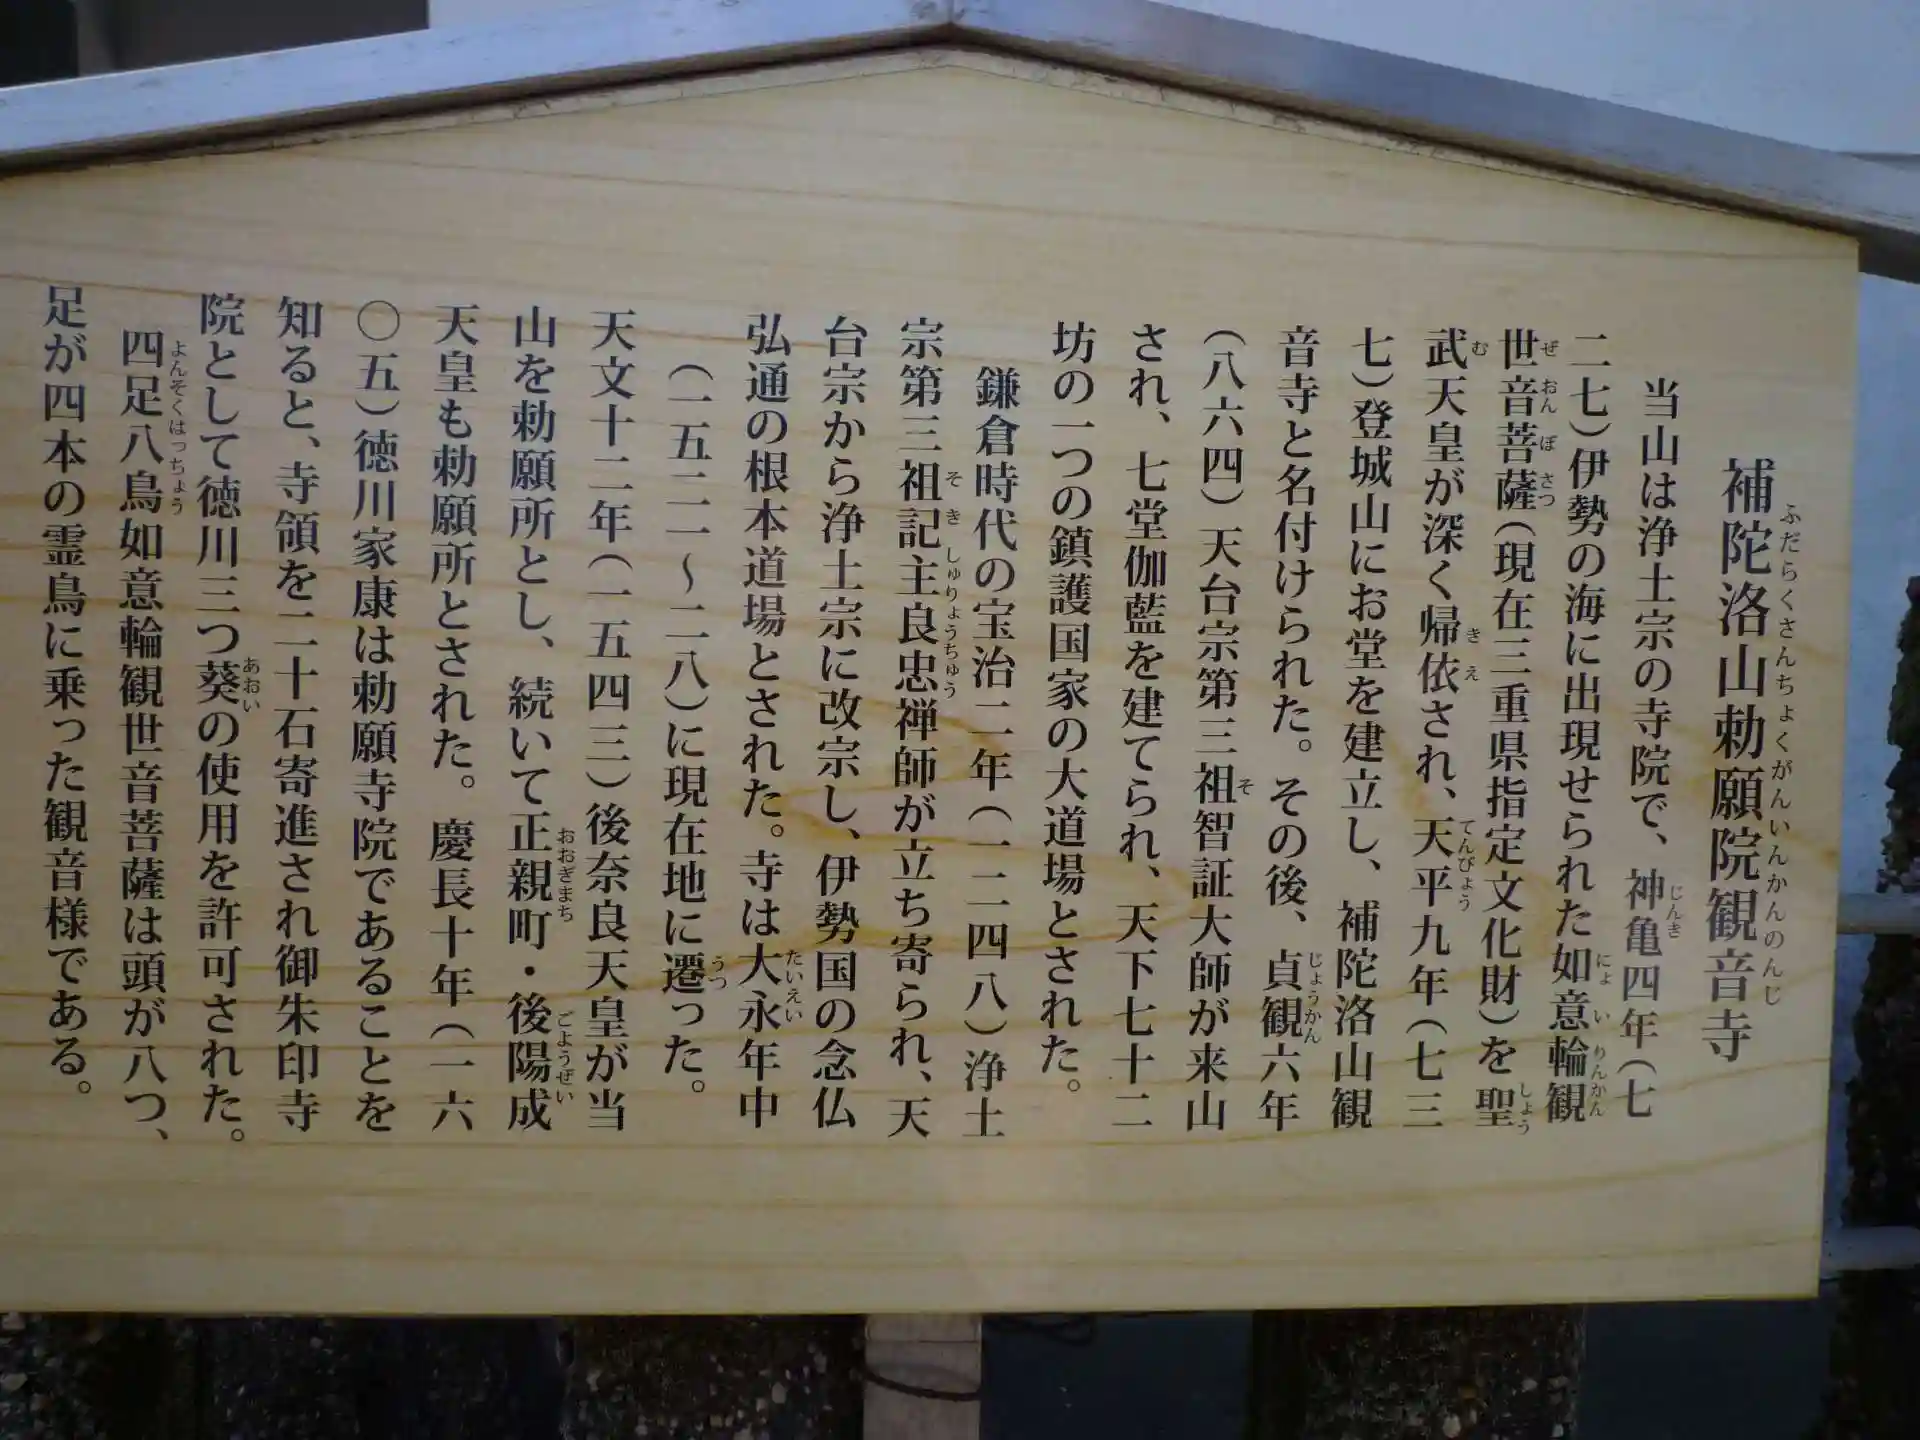 補陀洛山勅願院観音寺
ふだらくさんちょくがんいんかんのんじ
当山は浄土宗の寺院で、神亀四年（七
じんき
二七）伊勢の海に出現せられた如意輪観
にょ い りんかん
世音菩薩（現在三重県指定文化財）を聖
ぜ おん ぼ さつ しょう
武天皇が深く帰依され、天平九年（七三
む きえ てんぴょう
七）登城山にお堂を建立し、補陀洛山観
音寺と名付けられた。その後、貞観六年
じょうかん
（八六四）天台宗第三祖智証大師が来山
そ
され、七堂伽藍を建てられ、天下七十二
坊の一つの鎮護国家の大道場とされた。
鎌倉時代の宝治二年（一二四八）浄土
宗第三祖記主良忠禅師が立ち寄られ、天
そ き しゅりょうちゅう
台宗から浄土宗に改宗し、伊勢国の念仏
弘通の根本道場とされた。寺は大永年中
たいえい
（一五二一～二八）に現在地に遷った。
うつ
天文十二年（一五四三）後奈良天皇が当
山を勅願所とし、続いて正親町・後陽成
おおぎまち ごようぜい
天皇も勅願所とされた。慶長十年（一六
〇五）徳川家康は勅願寺院であることを
知ると、寺領を二十石寄進され御朱印寺
院として徳川三つ葵の使用を許可された。
あおい
四足八鳥如意輪観世音菩薩は頭が八つ、
よんそくはっちょう
足が四本の霊鳥に乗った観音様である。